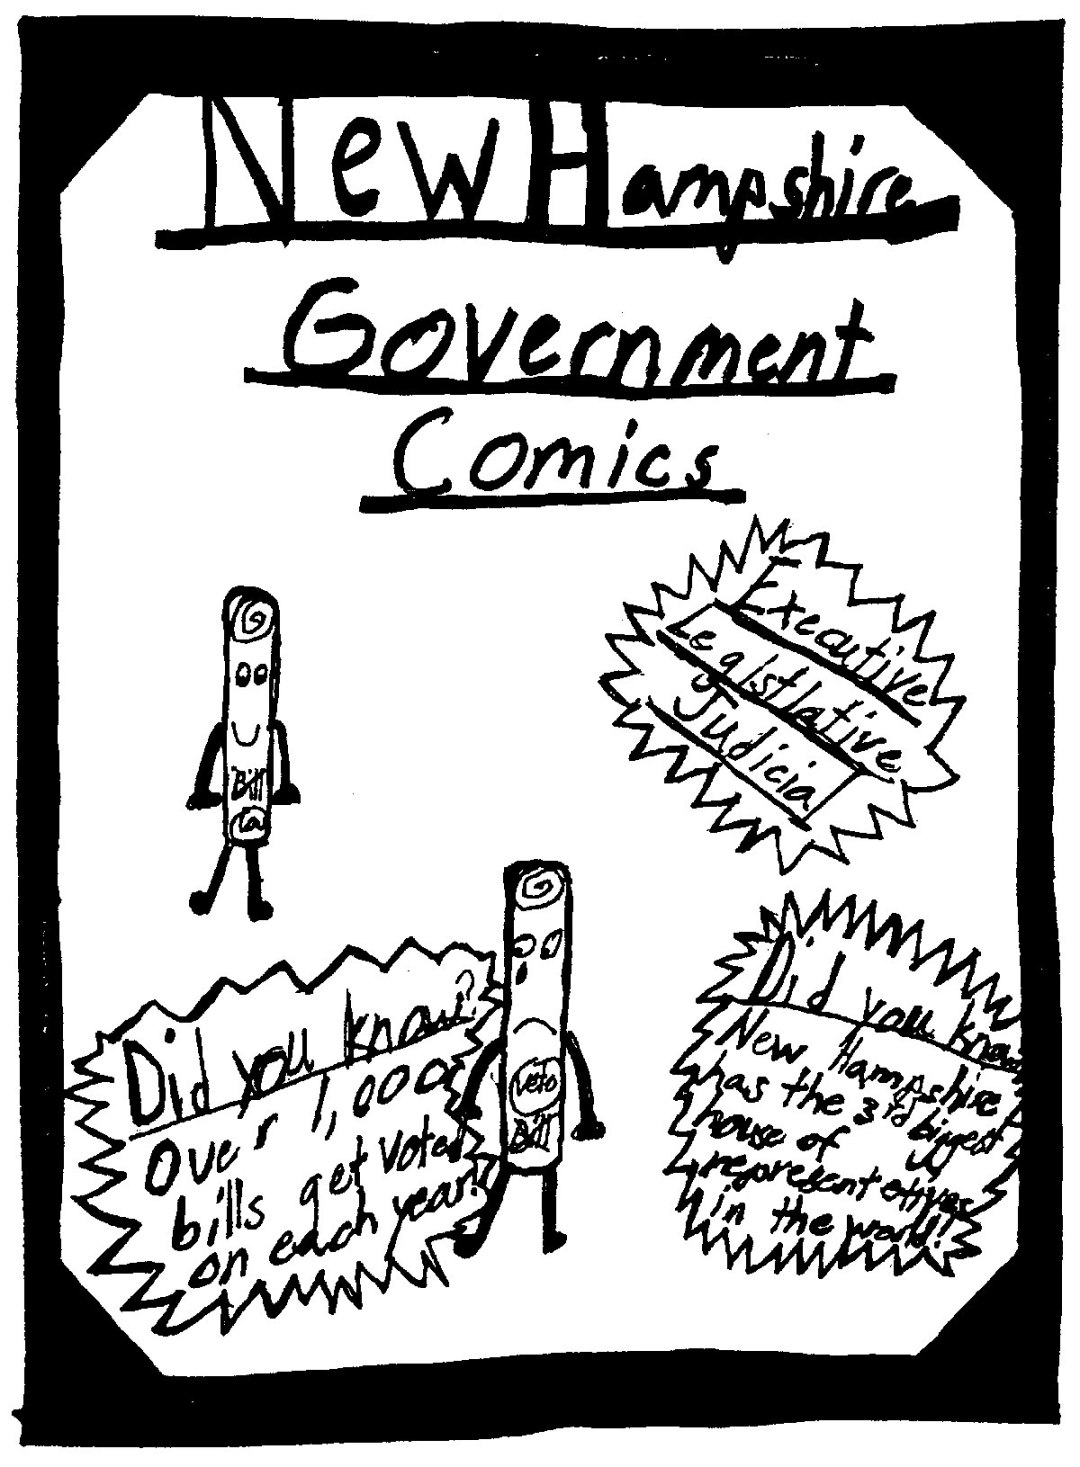 New Hampshire
Government
Comics
Executive
Legislative
Judicial
Bill
Veto
Bill
Did you know?
Over 1,000
bills get voted
on each year!
Did you know
New Hampshire
has the 3rd biggest
house of
representatives
in the world!